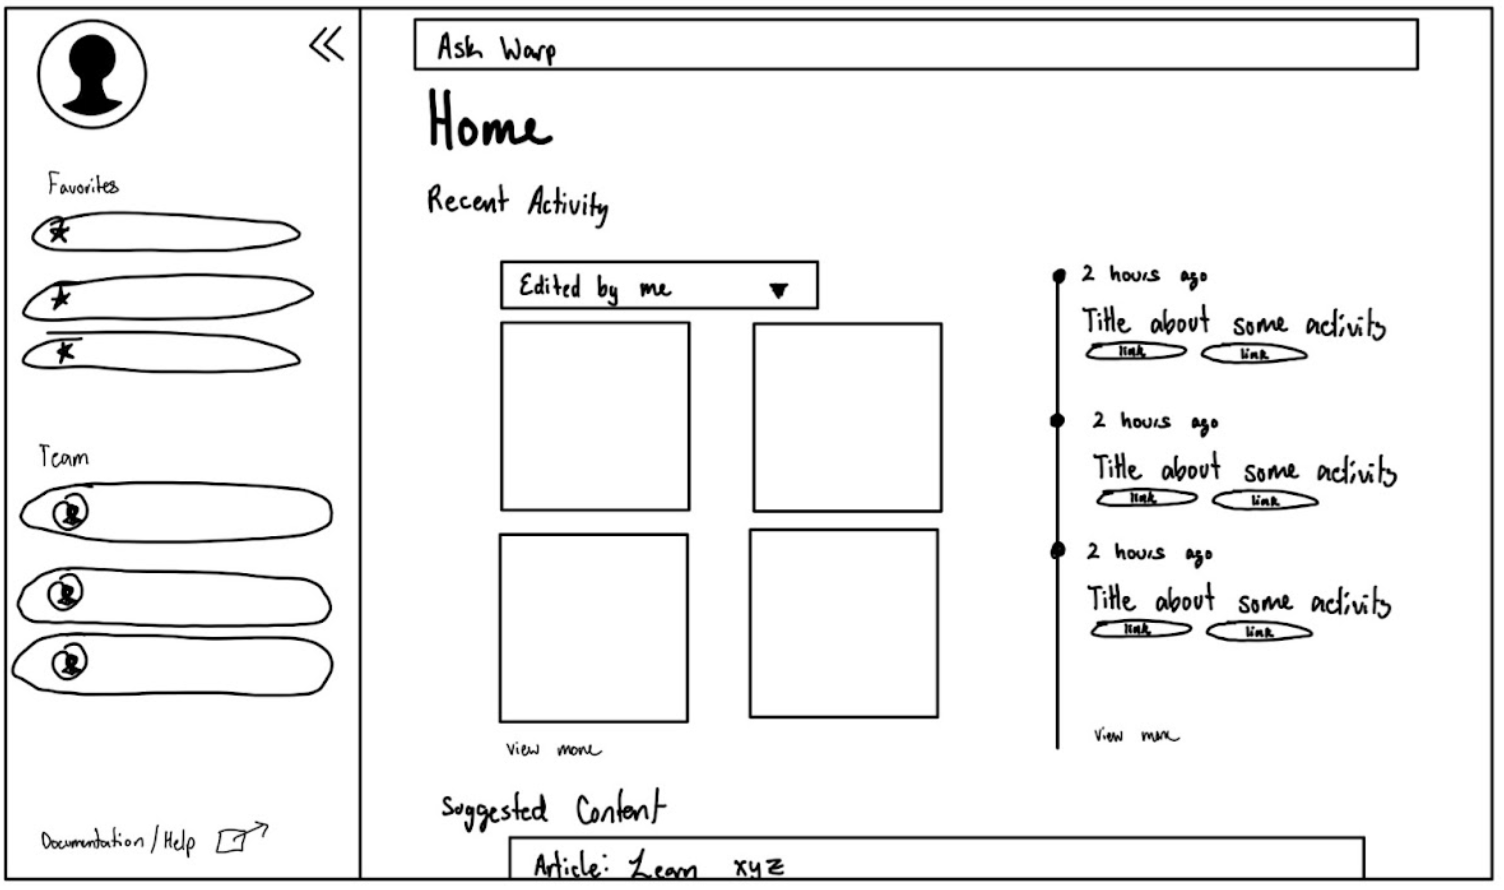 Favorites
Team
Documentation/Help
Ask Warp
Home
Recent Activity
Edited by me
View more
2 hours ago
Title about some activity
link link
2 hours ago
Title about some activity
link link
2 hours ago
Title about some activity
link link
View more
Suggested Content
Article: Learn xyz